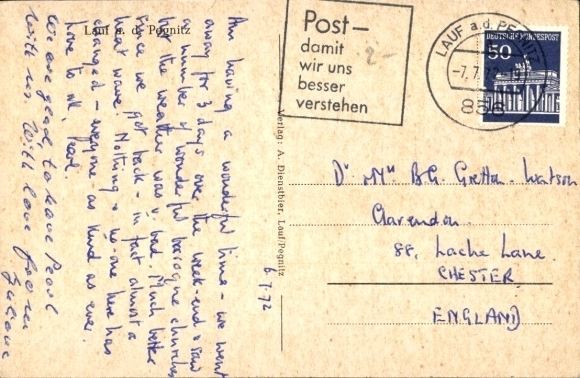 Lauf a. d. Pegnitz
Am having a wonderful time - we went
away for 3 days over the week-end & saw
a number of wonderful baroque churches
but the weather was v. bad. Much better
since we got back - in fact almost a
heat wave! Nothing & no one here has
changed - everyone as kind as ever.
love to all, Pearl.
We are glad to have Pearl
with us. With love from
Juliane
6.7.72
Verlag: A. Dienstbier, Lauf/Pegnitz
Post-
damit
wir uns
besser
verstehen
2-
LAUF a.d. PEGNITZ
-7.7.72
856
DEUTSCHE BUNDESPOST
50
Dr & Mrs B.G. Gretton-Watson
Clarendon
88, Lache Lane
CHESTER
ENGLAND